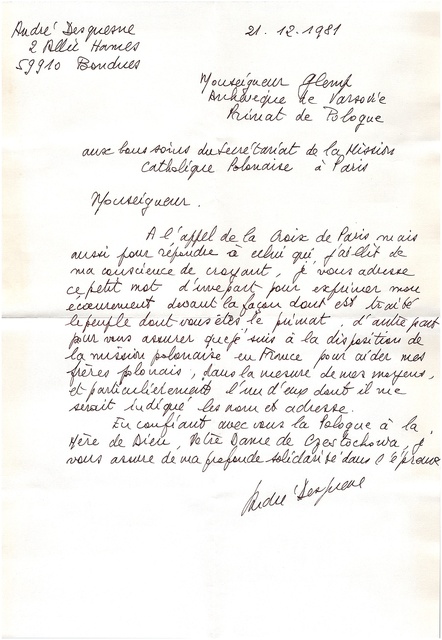 André Desquesne
2 Allée Hames
59910 Bondues
21.12.1981
Monseigneur Glemp
Archevêque de Varsovie
Primat de Pologne
aux bons soins du Secrétariat de la Mission
Catholique Polonaise à Paris
Monseigneur.
A l'appel de la Croix de Paris mais
aussi pour répondre à celui qui jaillit de
ma conscience de croyant, je vous adresse
ce petit mot d'une part pour exprimer mon
écœurement devant la façon dont est traité
le peuple dont vous êtes le primat, d'autre part
pour vous assurer que je suis à la disposition de
la mission polonaise en France pour aider mes
frères polonais, dans la mesure de mes moyens,
et particulièrement l'un d'eux dont il me
serait indiqué les nom et adresse.
En confiant avec vous la Pologne à la
Mère de Dieu, Notre Dame de Czestochowa, je
vous assure de ma profonde solidarité dans l'épreuve
André Desquesne